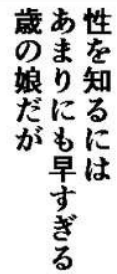 性を知るには
あまりにも早すぎる
歳の娘だが